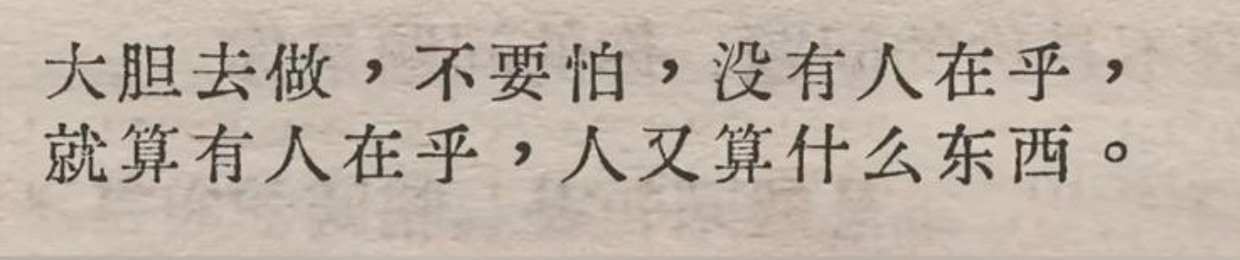 大胆去做，不要怕，没有人在乎，
就算有人在乎，人又算什么东西。